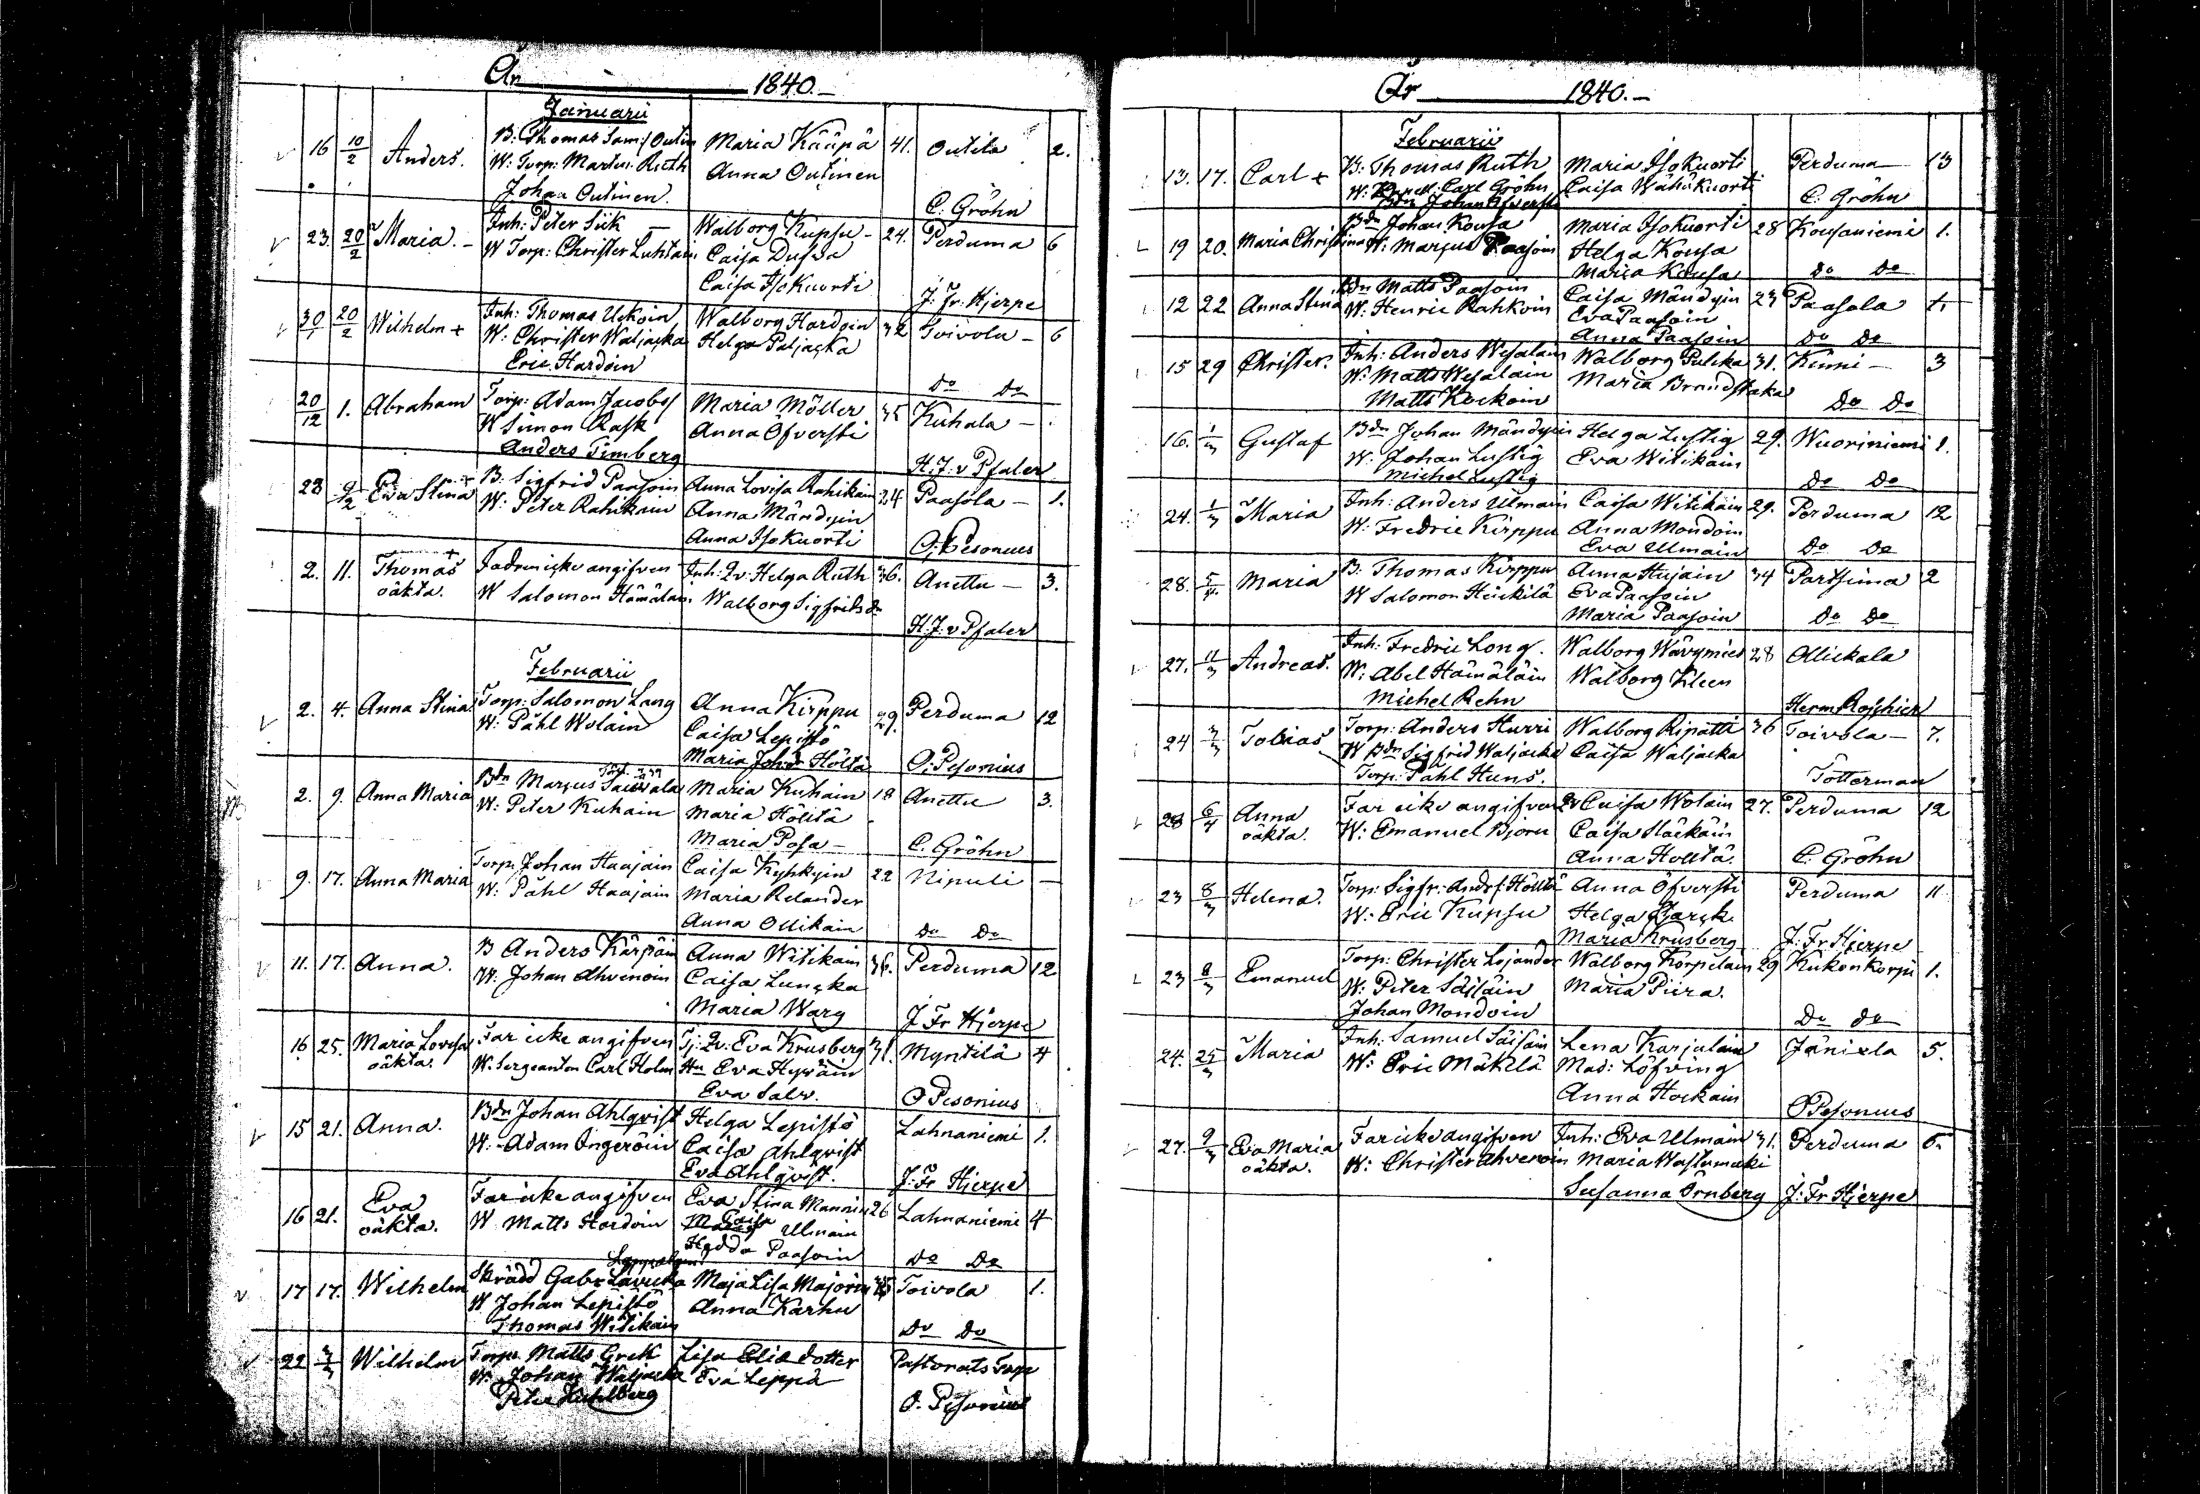 År 1840.
Januarii
16 10/2 Anders. B: Thomas Outin Maria Kääpä 41. Outila 2.
W: Torp: Ruth Anna Outinen
Johan Outinen. C: Gröhn
23. 20/2 Maria. Inh: Peter Sick Walborg Kupsu 24. Perduma 6
W Torp: Christer Luhtain Caisa
Caisa Isokuorti J: Fr: Hjerpe
30/1 20/2 Wilhelm + Inh: Thomas Uckoin Walborg Hardoin 32 Toivola 6
W: Christer Waljacka Helga
Eric Hardoin Do Do
20/12 1. Abraham Torp: Adam Jacobs/ Maria Möller 35 Kuhala
W Simon Rask Anna Öfversti
Anders Timberg H: J. v Pfaler
23 9/2 Eva Stina B: Sigfrid Paasoin Anna Lovisa Rahikain 24 Paasola 1.
W: Peter Rahikain Anna Mändyin
Anna Isokuorti O: Pesonius
2. 11. Thomas + angifven Inh: Qv: Helga Ruth 36. Anettu 3.
oäkta. W Salomon Hämäläin Walborg Sigfrids dr
H: J. v Pfaler
Februarii
2. 4. Anna Stina Torp: Salomon Lang Anna Kirppu 29. Perduma 12
W: Påhl Wolain Caisa Lepistö
Maria Höltä O: Pesonius
2. 9. Anna Maria Bdn Marcus Maria Kuhain 18 Anettu 3.
W: Peter Kuhain Maria Höltä
Maria Posa C. Gröhn
9. 17. Anna Maria Torp: Johan Haajain Caisa Kyhkyin 22 Nipuli
W: Påhl Haajain Maria Relander
Anna Ollikain Do Do
11. 17. Anna. B Anders Kärpäin Anna Witikain 36. Perduma 12
W: Johan Ahvenoin Caisa Luncka
Maria Warg J Fr Hjerpe
16 25. Maria Lovisa Far icke angifven Tj: Qv: Eva Krusberg 31. Myntilä 4
oäkta. W. Sergeanten Carl Holm Hu Eva Hyväin
Eva Salv. O Pesonius
15 21. Anna. Bdn Johan Ahlqvist Helga Lepistö Lahnaniemi 1.
W: Adam Ingeröin Caisa Ahlqvist
Eva Ahlqvist. J: Fr Hjerpe
16 21. Eva Far icke angifven Eva Stina Mannin 26 Lahnaniemi 4
oäkta. W Matts Hardoin Caisa Ulmain
Hedda Paasoin Do Do
17 17. Wilhelm Skrädd Gabr: Maja Lisa Majorin Toivola 1.
W Johan Lepistö Anna Karhu
Thomas Witikain Do Do
22 3/3 Wilhelm Torp. Matts Grek Lisa Elias dotter Pastorats Torp
W: Johan Waljacka Eva Leppä
Peter O. Pesonius
År 1840.
Februarii
13. 17. Carl + B: Thomas Ruth Maria Isokuorti Perduma 13
W: Carl Gröhn Caisa Wähäkuorti C: Gröhn
Bdn Johan Öfversti
19 20. Maria Christina Bdn Johan Kousa Maria Isokuorti 28 Kousaniemi 1.
W: Marcus Paasoin Helga Kousa
Maria Kousa Do Do
12 22 Anna Stina Bdn Matts Paasoin Caisa Mändyin 23 Paasola
W: Henric Rahkoin Eva Paasoin
Anna Paasoin Do Do
15 29 Christer. Inh: Anders Wesalain Walborg Pulcka 31. Kiimi 3
W: Matts Wesalain Maria Brandstaka
Matts Kockoin Do Do
16. 1/3 Gustaf Bdn Johan Mändyin Helga Lustig 29. Wuoriniemi 1.
W: Johan Lustig Eva Witikain
Michel Lustig Do Do
24. 1/3 Maria Inh: Anders Ulmain Caisa Witikain 29. Perduma 12
W: Fredric Kirppu Anna Mondoin
Eva Ulmain Do Do
28. 5/4 Maria B. Thomas Kirppu Anna Hujain 34 Partsima 2
W Salomon Heickilä Eva Paasoin
Maria Paasoin Do Do
27. 11/3 Andreas. Inh: Fredric Long. Walborg Wävymies 28 Ollickala
W: Abel Hämäläin Walborg
Michel Rehn Herm Roschier
24 3/3 Tobias Torp: Anders Hurri Walborg Ripatti 36 Toivola 7.
W Bdn Sigfrid Waljacka Caisa Waljacka
Torp: Påhl Huns. Tötterman
28 6/4 Anna Far icke angifven Qv Caisa Wolain 27. Perduma 12
oäkta. W: Emanuel Björn Caisa
Anna Holttä. C. Gröhn
23 8/3 Helena. Torp: Sigfr: Höltä Anna Öfversti Perduma 11
W: Eric Kupsu Helga
Maria Krusberg J: Fr Hjerpe
23 8/3 Emanuel Torp: Christer Lojander Walborg Korpelain 29 Kukonkorpi 1.
W: Peter Säisäin Maria Piira.
Johan Mondoin Do Do
24. 25/3 Maria Inh: Samuel Säisäin Lena Karjalain Jänixla 5.
W: Eric Mäkelä Mad: Löfving
Anna Hockain O Pesonius
27. 9/3 Eva Maria Far icke angifven Inh: Eva Ulmain 31. Perduma 6
oäkta. W: Christer Ahvenoin Maria Wastamäki
Susanna Örnberg J: Fr Hjerpe